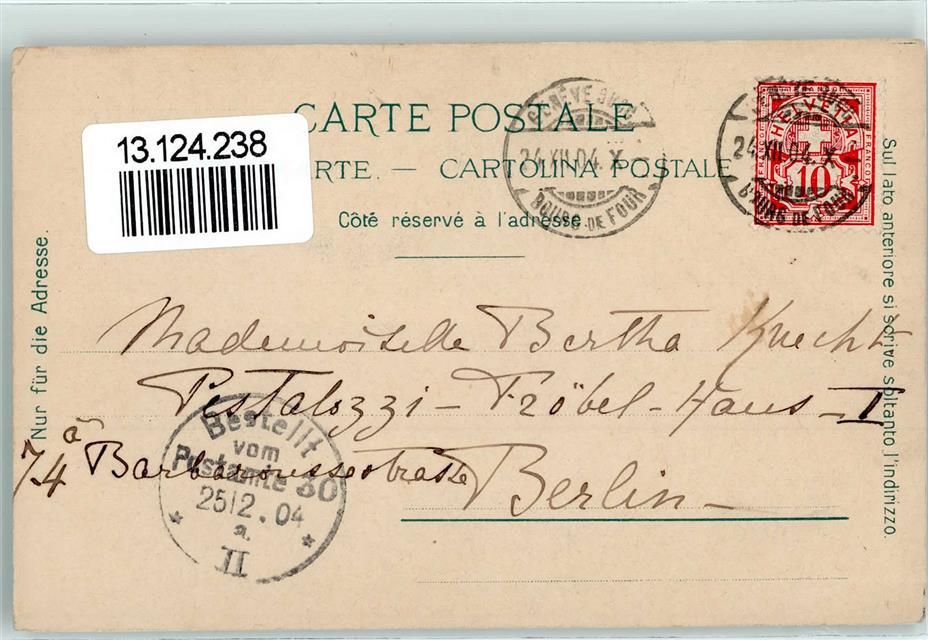 CARTE POSTALE
13.124.238
ARTE. — CARTOLINA POSTALE
Côté réservé à l'adresse.
GENÈVE
24.XII.04.X
BOURG DE FOUR
24.XII.04.X
BOURG DE FOUR
HELVETIA
FRANCO
10
Nur für die Adresse.
Sul lato anteriore si scrive soltanto l'indirizzo.
Mademoiselle Bertha Knecht
Pestalozzi - Fröbel - Haus - I
à
74 Barbarossastrasse Berlin -
Bestellt
vom
Postamte 30
25 12.04
II